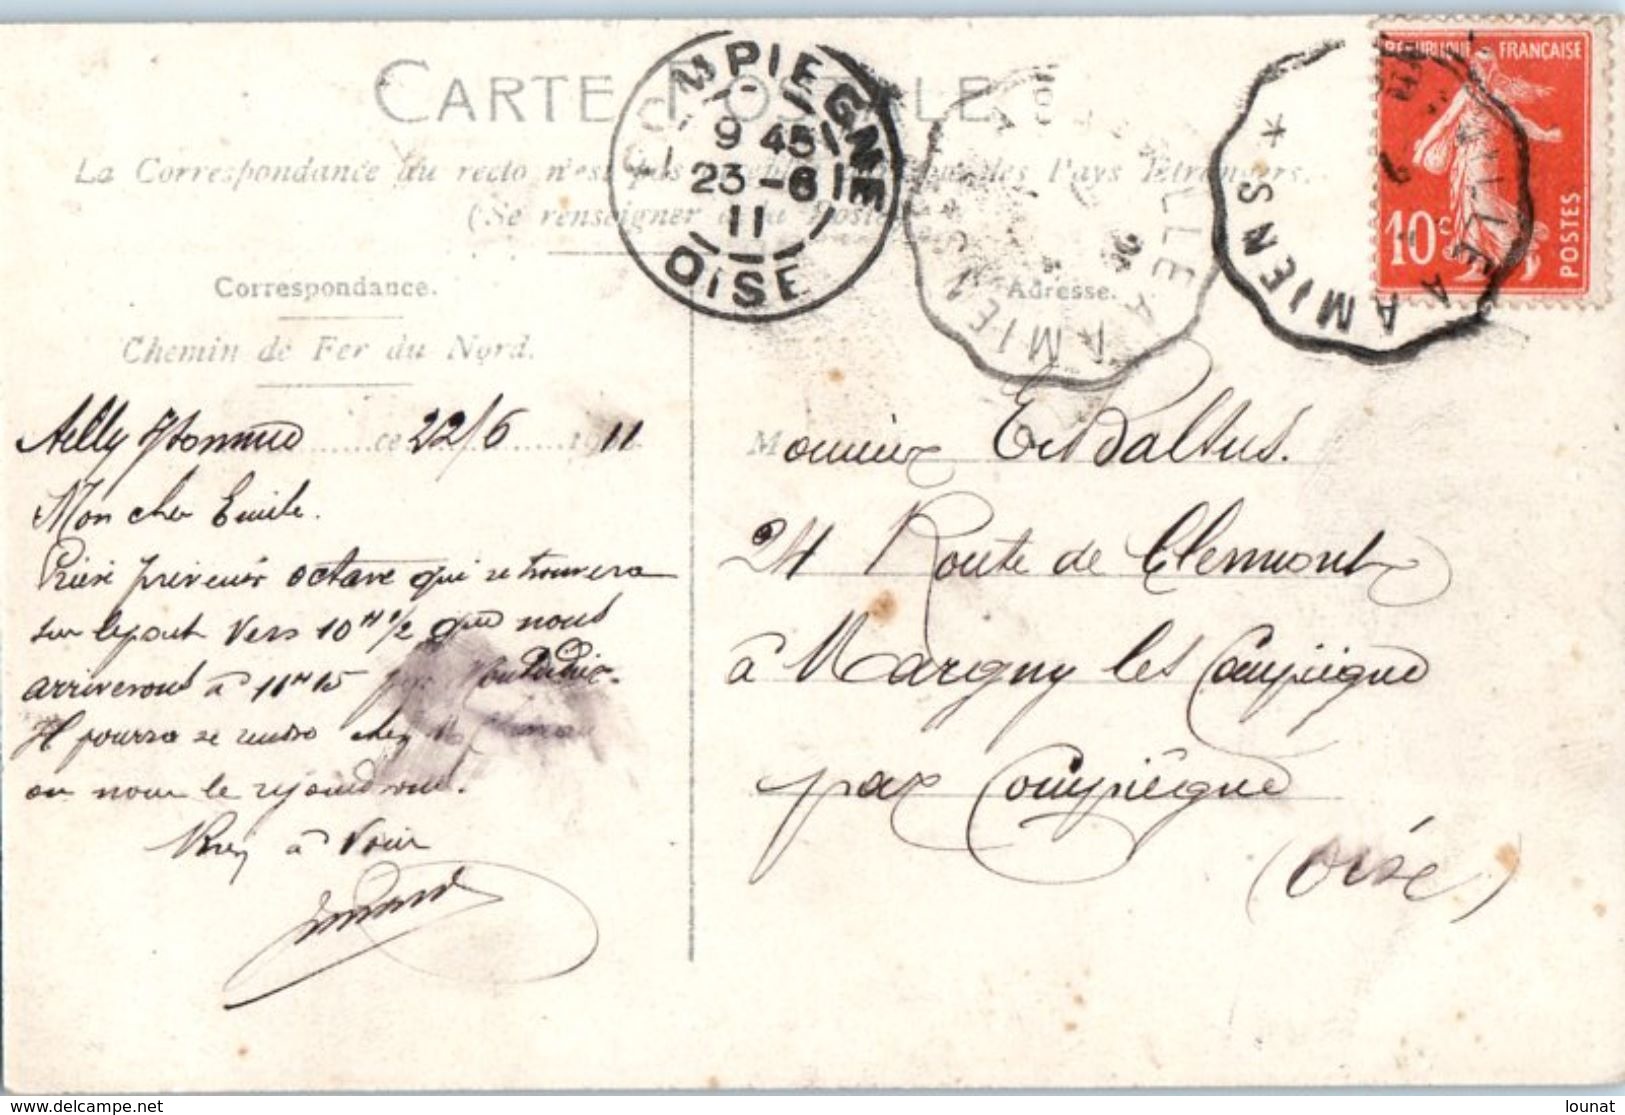 CARTE POSTALE
La Correspondance au recto n'est pas des Pays Étrangers.
(Se renseigner à la Poste
COMPIEGNE
9 45
23 -6
11
OISE
AMIENS
LLE A AMIENS
VILLE A AMIENS *
REPUBLIQUE FRANCAISE
10c
POSTES
Correspondance.
Adresse.
Chemin de Fer du Nord.
Ailly s/ Somme ce 22/6 1911
Mon cher Emile.
Prière prévenir octave qui se trouvera
sur le pont vers 10H 1/2 que nous
arriverons à 11H15
Il pourra se rendre chez
ou nous le rejoindrons.
Rien à Voir
Monsieur E. Baltus.
24 Route de Clermont
à Margny les Compiègne
par Compiègne
(Oise)
delcampe.net
lounat